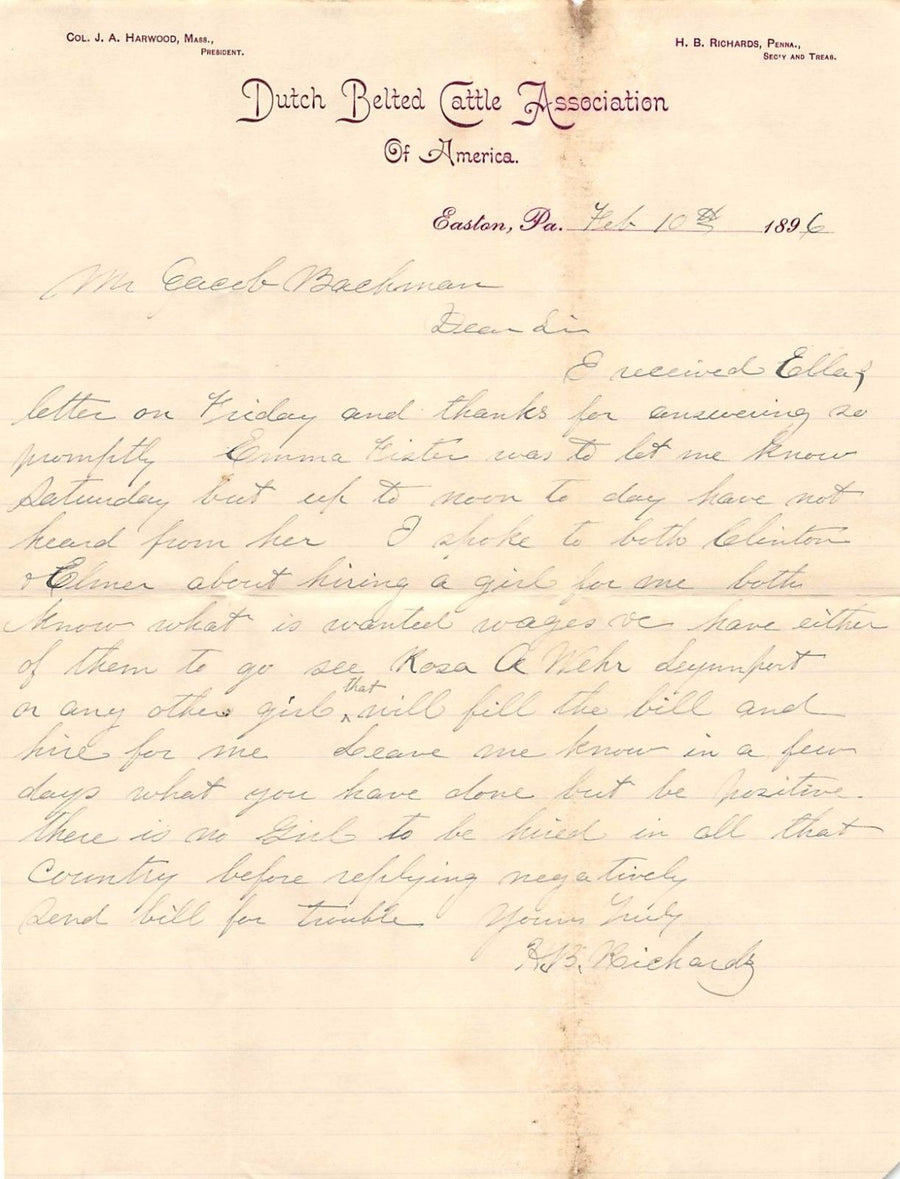 COL. J. A. HARWOOD, MASS.,
PRESIDENT.
H. B. RICHARDS, PENNA.,
SEC'Y AND TREAS.
Dutch Belted Cattle Association
Of America.
Easton, Pa. Feb 10th 1896
Mr Jacob Bachman
Dear Sir
I received Ellas
letter on Friday and thanks for answering so
promptly Emma Fister was to let me know
Saturday but up to noon to day have not
heard from her I spoke to both Clinton
& Elmer about hiring a girl for me both
know what is wanted wages &c have either
of them to go see Rosa A Wehr
or any other girl that will fill the bill and
hire for me Leave me know in a few
days what you have done but be positive
there is no Girl to be hired in all that
Country before replying negatively
Send bill for trouble Yours Truly
H.B. Richards